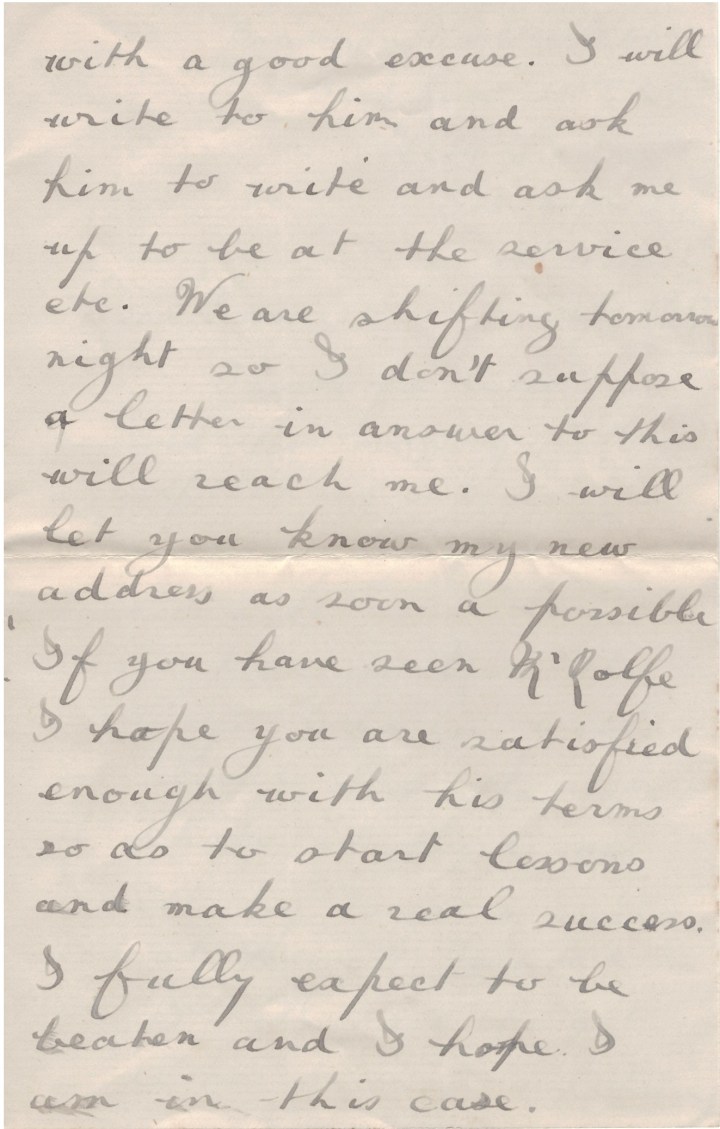 with a good excuse. I will
write to him and ask
him to write and ask me
up to be at the service
etc. We are shifting tomorrow
night so I don't suppose
a letter in answer to this
will reach me. I will
let you know my new
address as soon a possible
If you have seen Mr Rolfe
I hope you are satisfied
enough with his terms
so as to start lessons
and make a real success.
I fully expect to be
beaten and I hope I
am in this case.